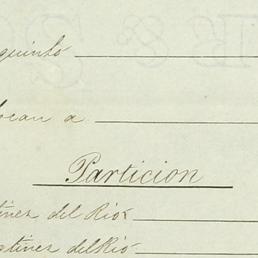 quinto
ocan a
Particion
tines del Rios
stines del Rio